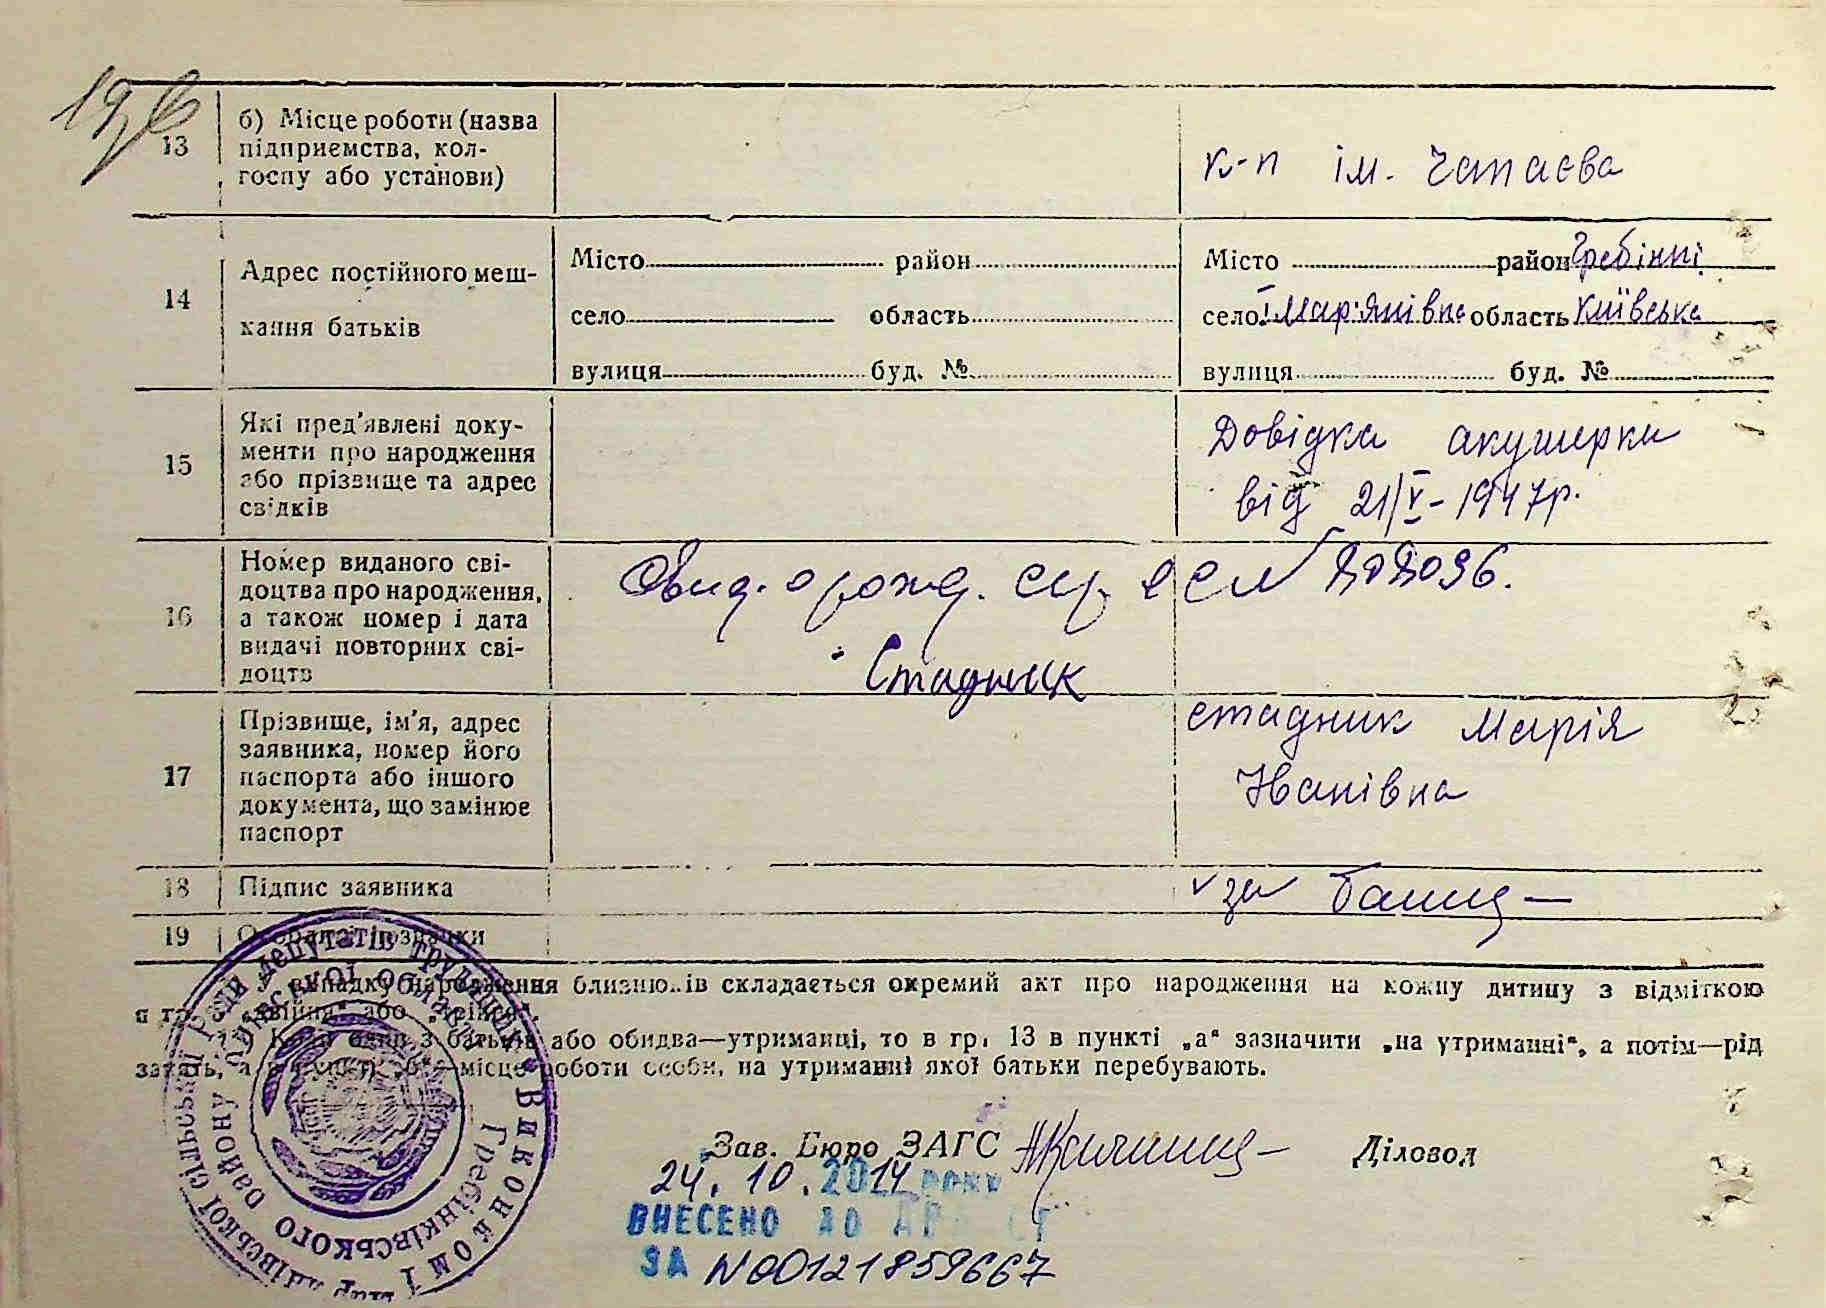 13 б) Місце роботи (назва
підприємства, кол-
госпу або установи)
к-п ім. Чапаєва
14 Адрес постійного меш-
кання батьків
Місто район
село область
вулиця буд. №
Місто район Гребінкі
село Мар'янівка область Київська
вулиця буд. №
15 Які пред'явлені доку-
менти про народження
або прізвище та адрес
свідків
Довідка акушерки
від 21/V-1947р.
16 Номер виданого сві-
доцтва про народження,
а також номер і дата
видачі повторних сві-
доцтв
Свид. о рожд.
Стадник
17 Прізвище, ім'я, адрес
заявника, номер його
паспорта або іншого
документа, що замінює
паспорт
Стадник Марія
Іванівна
18 Підпис заявника
19
У випадку народження близнюків складається окремий акт про народження на кожну дитину з відміткою
або
або обидва—утриманці, то в гр. 13 в пункті „а“ зазначити „на утриманні“, а потім—рід
місце роботи особи, на утриманні якої батьки перебувають.
Зав. Бюро ЗАГС Діловод
24. 10. 2014 року
ВНЕСЕНО ДО
ЗА N00121859667
Виконком
Ради депутатів трудящих
Гребінківського району Київської області